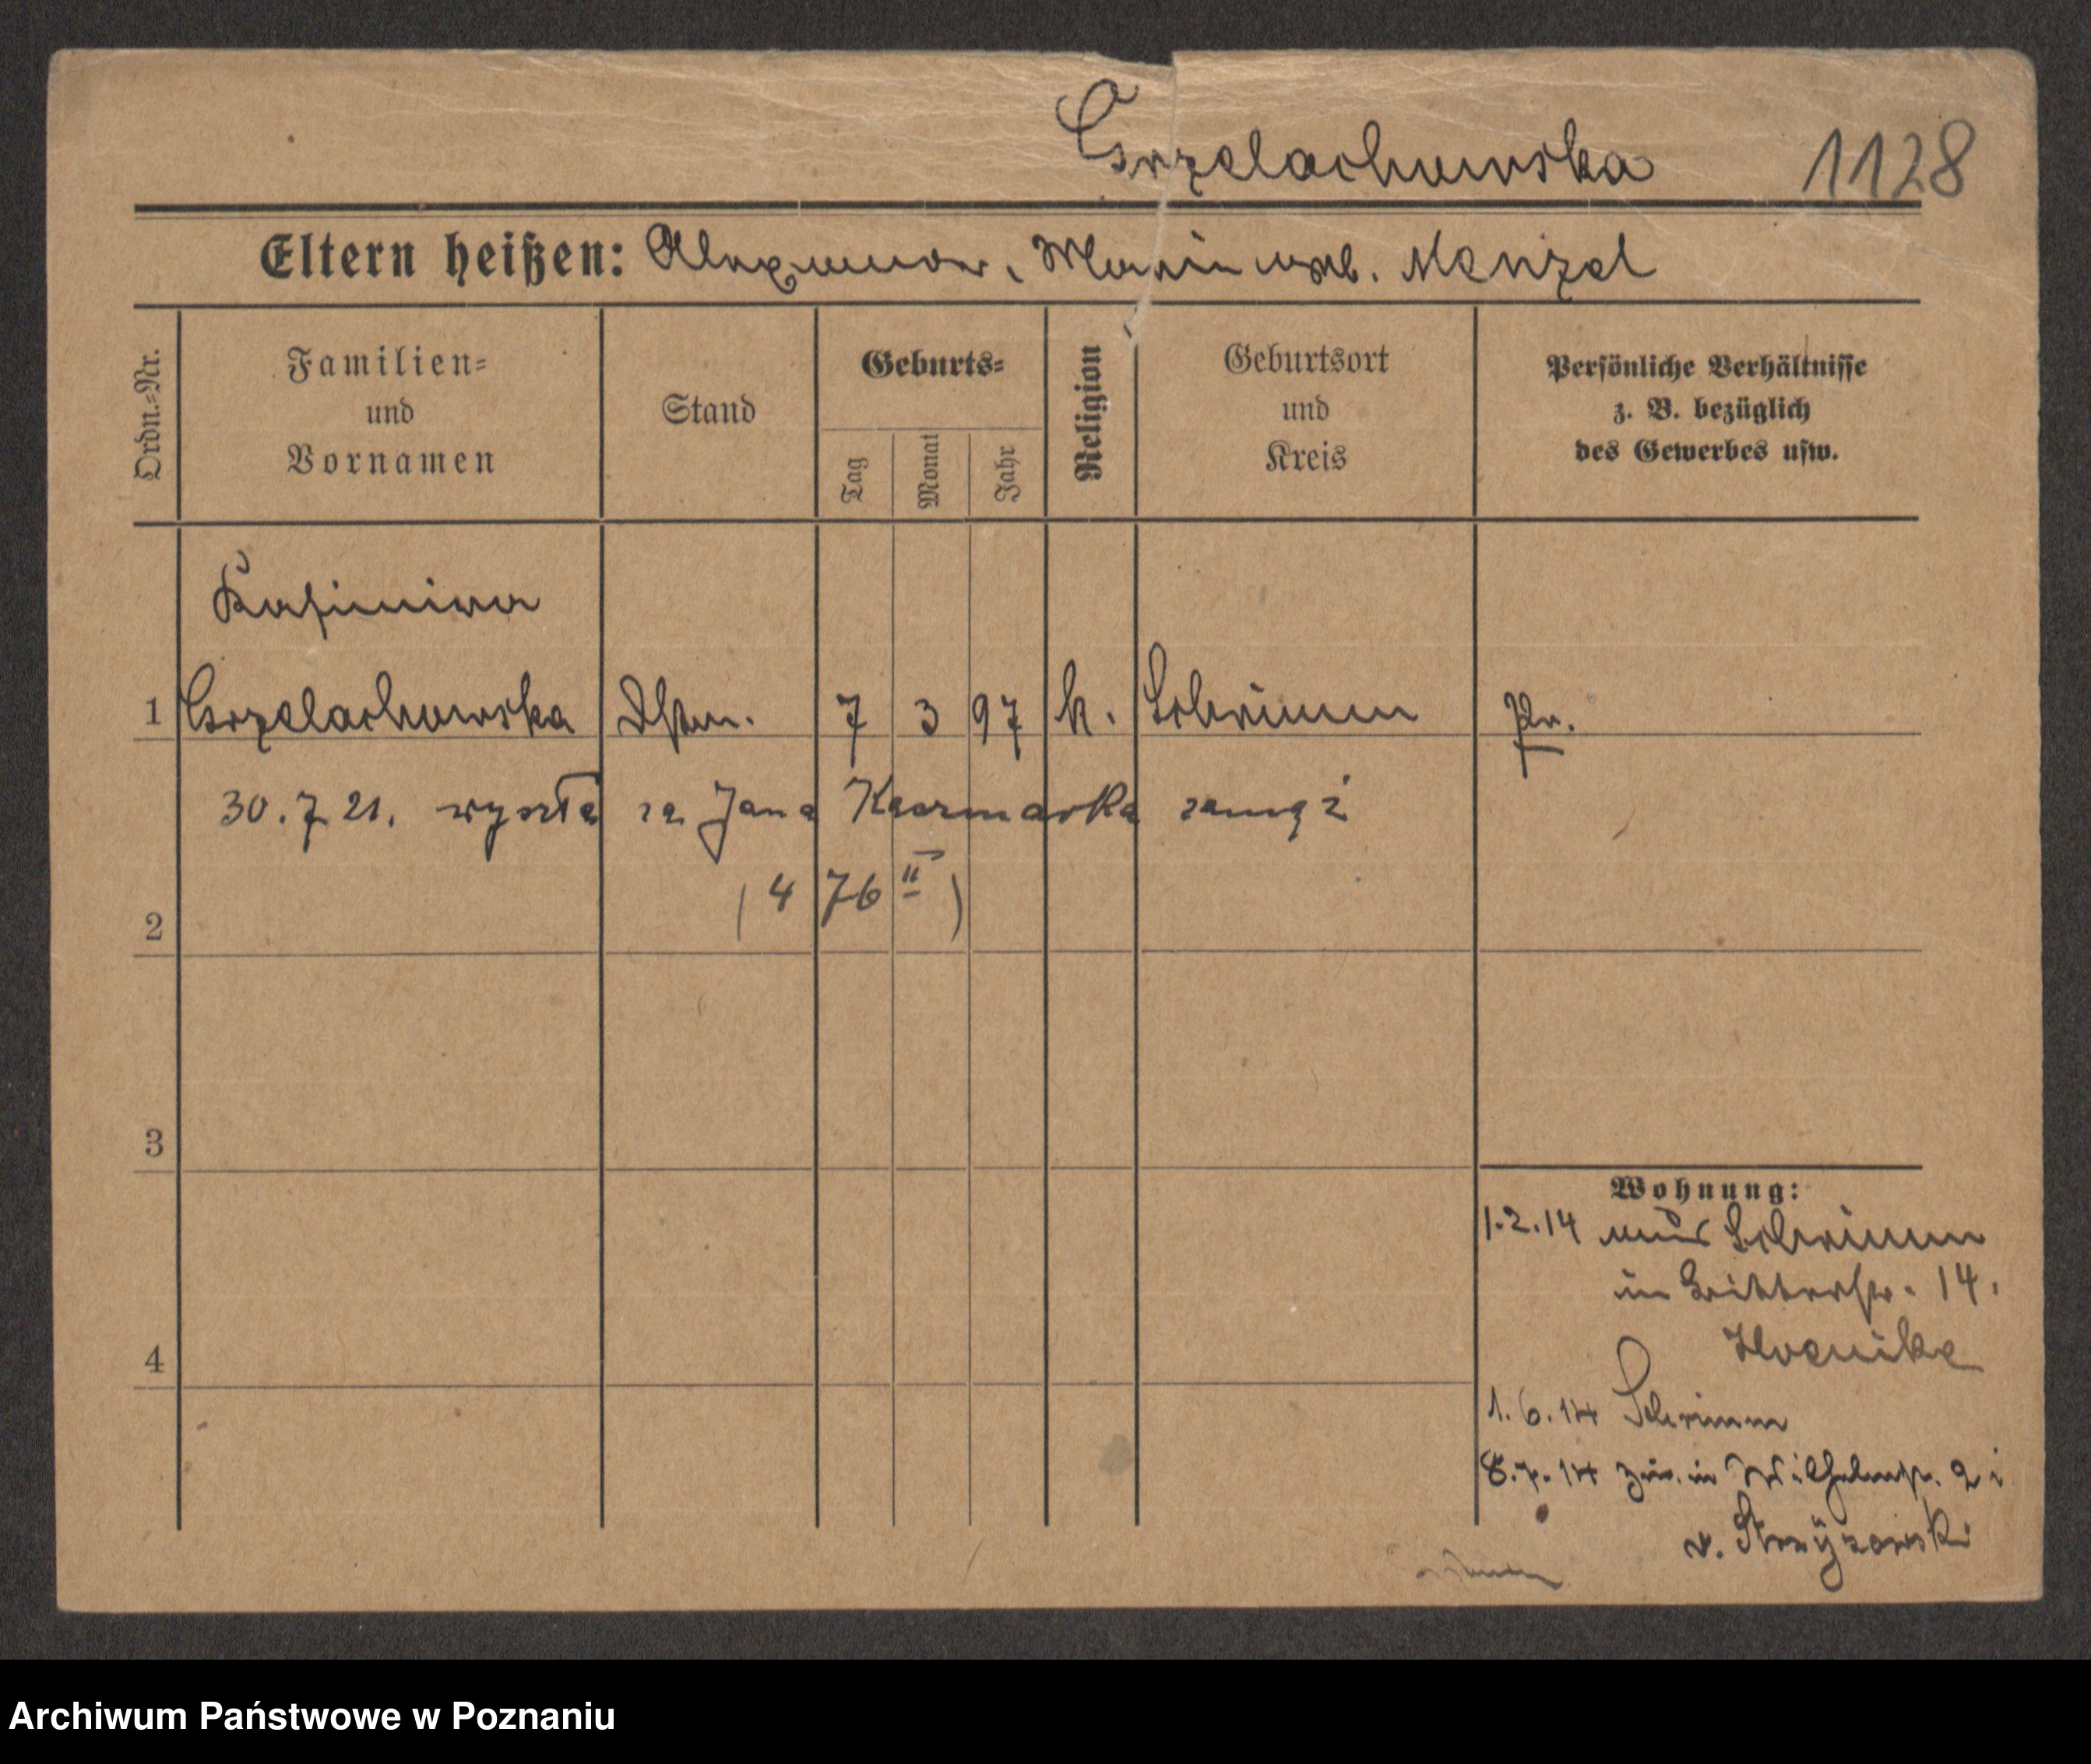 Grzelachowska 1128
Eltern heißen: Alexander, Marie geb. Menzel
Ordn.-Nr.
Familien-
und
Vornamen
Stand
Geburts-
Tag
Monat
Jahr
Religion
Geburtsort
und
Kreis
Persönliche Verhältnisse
z. B. bezüglich
des Gewerbes usw.
Kasimira
1 Grzelachowska Dstm. 7 3 97 k. Schrimm Pr.
30.7 21. wyszła za Jana Kaczmarka zamąż
(476 II)
2
3
4
Wohnung:
1.2.14 aus Schrimm
in Ritterstr. 14.
1.6.14 Schrimm
8.7.14 zur. in Wilhelmstr. 2
v. Strzyzowski
Archiwum Państwowe w Poznaniu